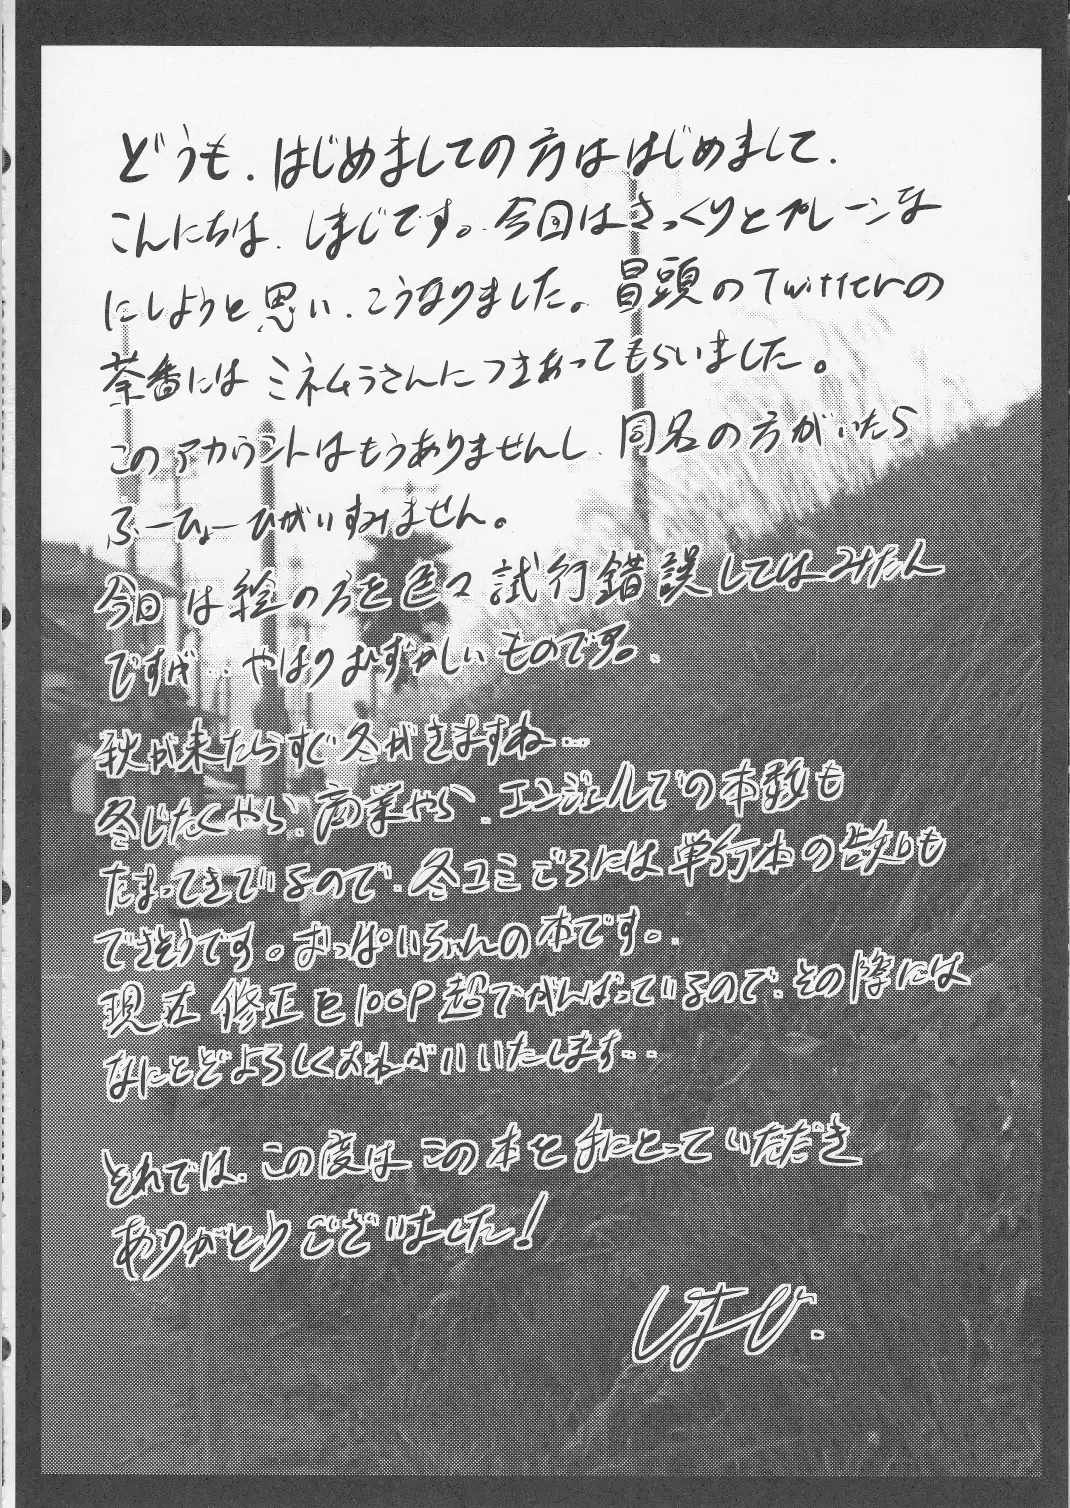 どうも、はじめましての方ははじめまして、
こんにちは、しまじです。今回はさっくりとプレーンな
にしようと思い、こうなりました。冒頭のTwitterの
茶番にはミネムラさんにつきあってもらいました。
このアカウントはもうありませんし、同名の方がいたら
ふーひょーひがいすみません。
今回は絵の方を色々試行錯誤してはみたん
ですが…やはりむずかしいものです。
秋が来たらすぐ冬がきますね…
冬じたくやら、商業やら、エンジェルでの本数も
たまってきているので、冬コミごろには単行本の告知も
できそうです。おっぱいちゃんの本です..
現在修正を100P超でがんばっているので、その際には
なにとどよろしくおねがいいたします..
それでは、この度はこの本を手にとっていただき
ありがとうございました!